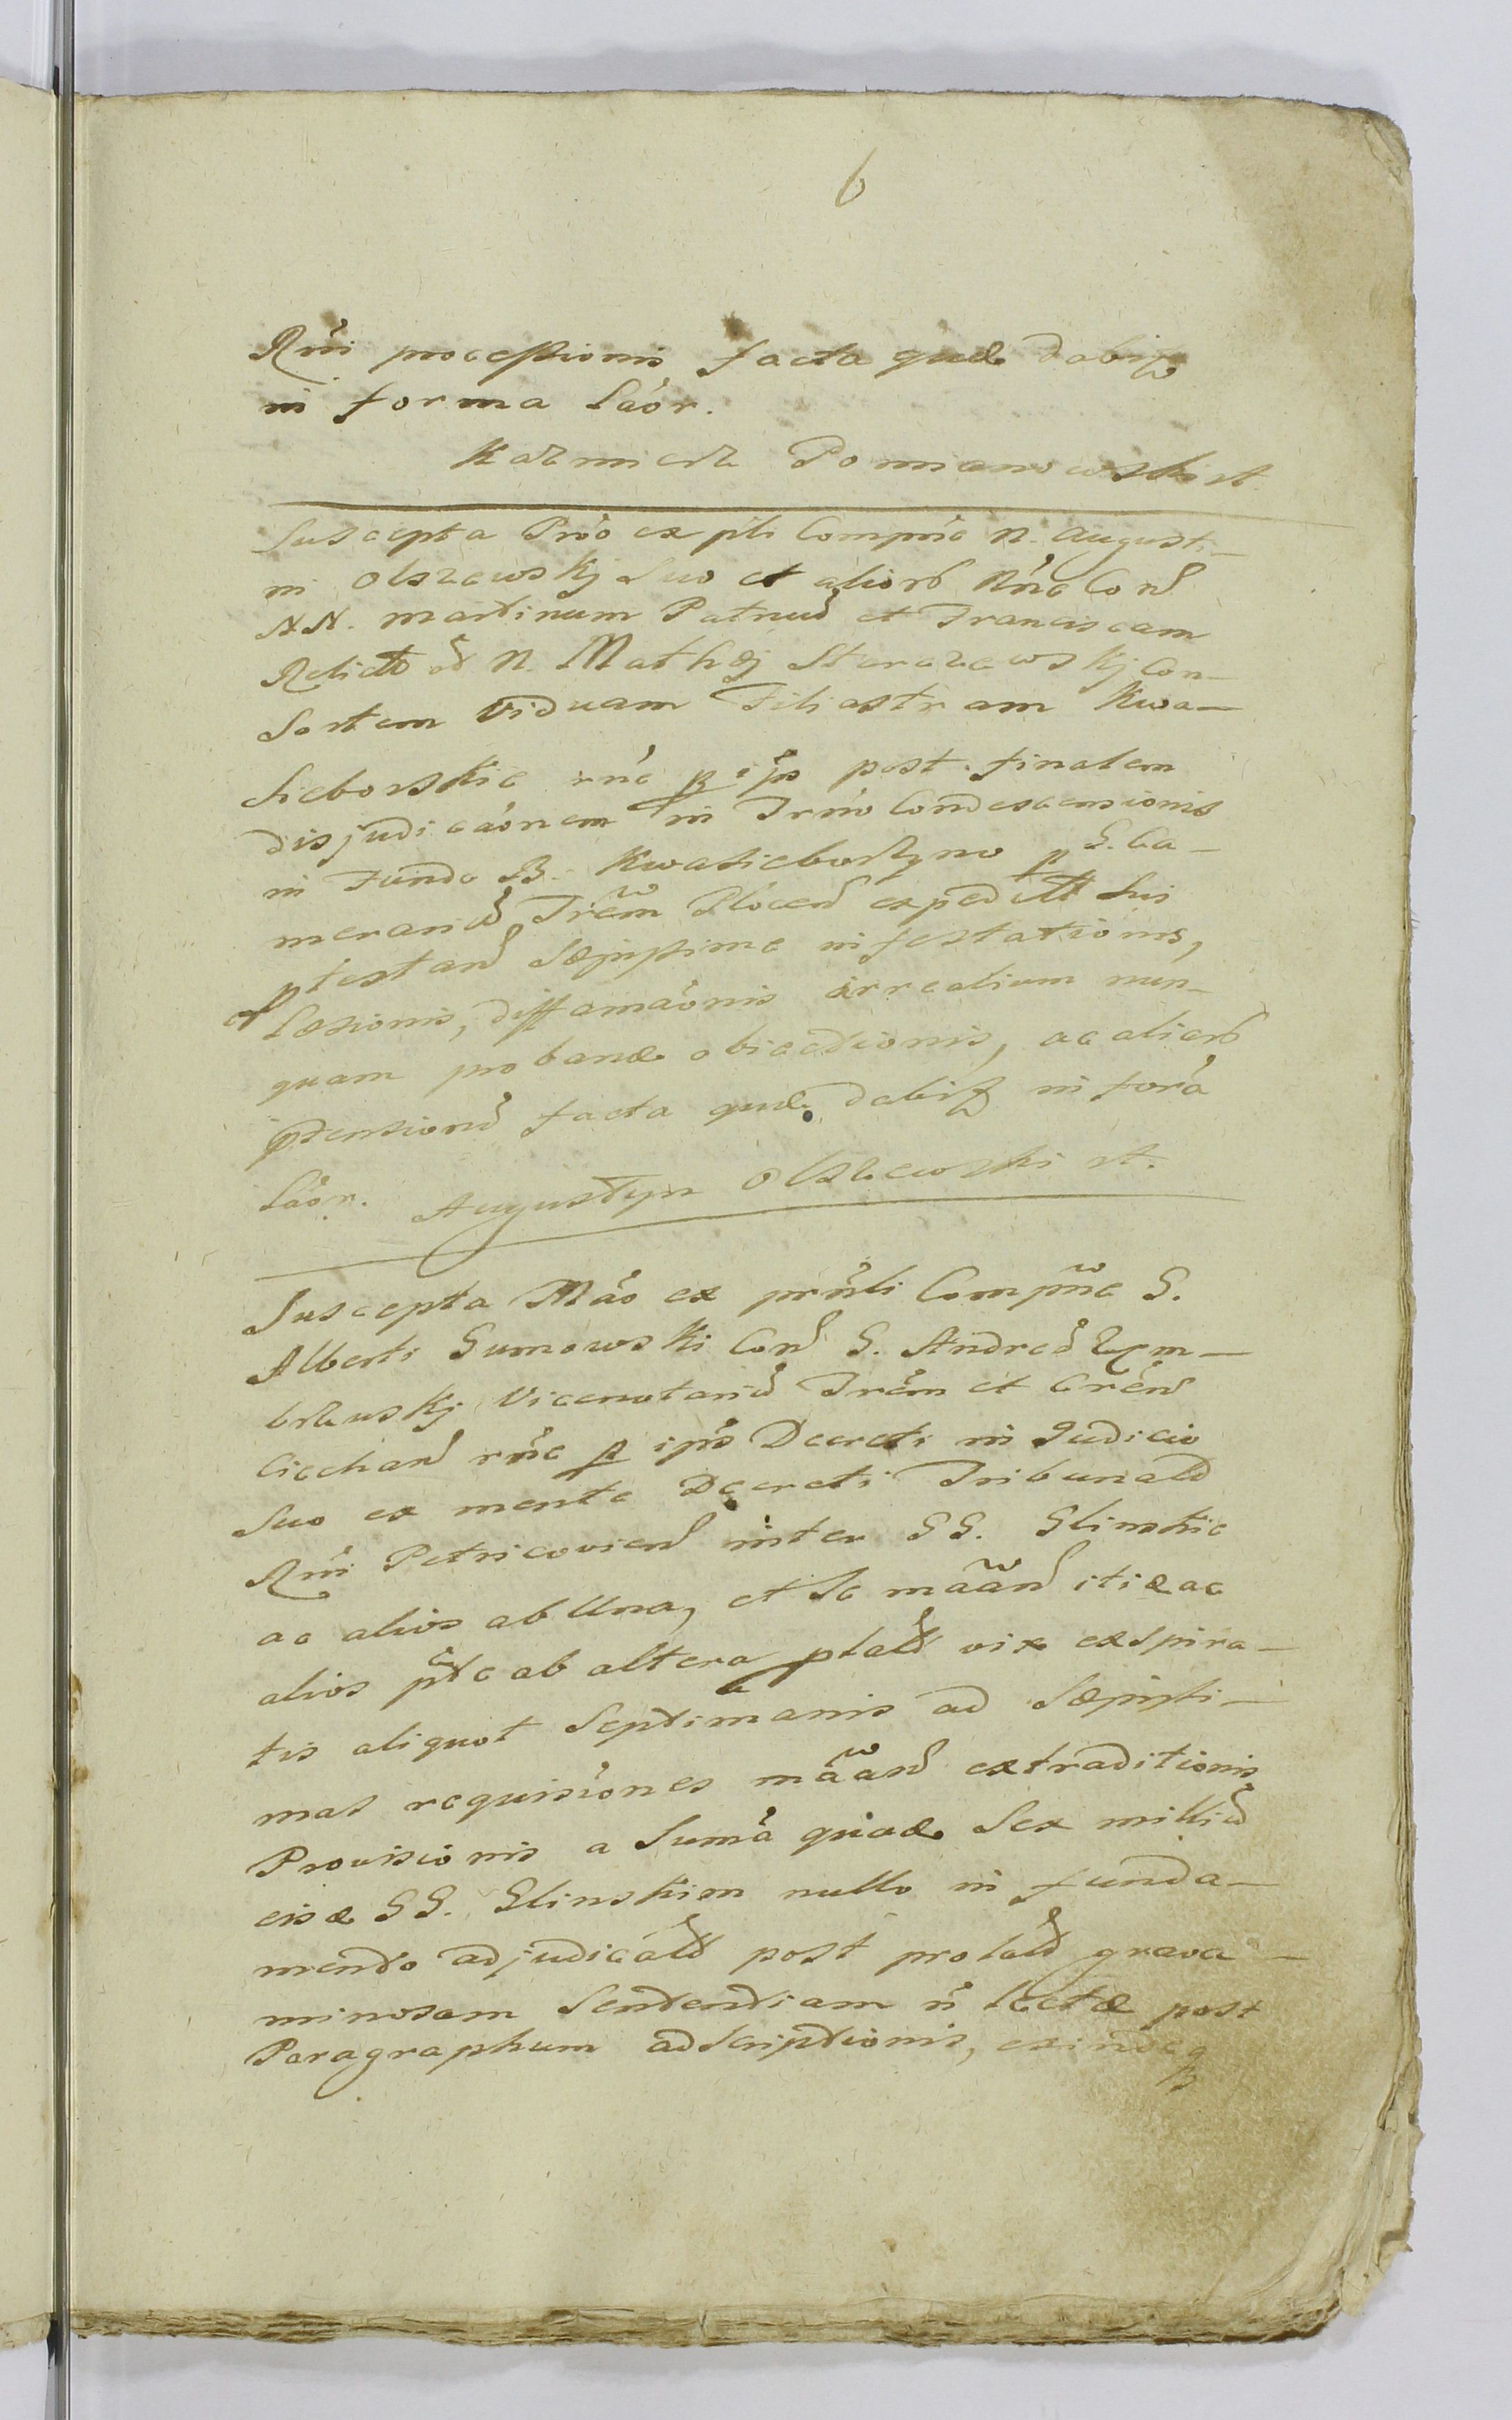 6
Rni processionis facta quæ dabitz
in forma Laor.
Kazmierz Pomianowski st
Suscepta Prõo ex pñli Compñe N. Augusti-
ni Olszewskj Suo et aliorð Nñe Conð
NN. Martinum Patruuð et Franciscam
Relictæ N. Mathæj Starazewskj Con-
Sortem Viduam Filiastram Kwa-
sieborskie rñe p ipo post finalem
disjudicãonem in Trño Condescensionis
in Fundo B. Kwasieborzyno p G. Ca-
merariuð Trẽm Plocenð expedit Sui
ptestanð Sæpissime infestationis,
Læsionis, diffamãonis irrealium nun-
quam probanæ obiectionis, ac aliorð
ptensionð facta quæ dabitz in forã
Lãor. Augustyn Olszewski st.
Suscepta Mão ex pñli Compñe G.
Alberti Gumowski Conð G. Andreð Zem-
brzuskj Vicenotariuð Trẽm et Crẽnð
Ciechanð rñe p ipo Decreti in Judicio
Suo ex mente Decreti Tribunalð
Rñi Petricoviensð inter GG. Glinskie
ac alios ab Una, et Se mãanð itiæ ac
alios pte ab altera platð vix exspira-
tis aliquot Septimanis ad Sæpissi-
mas requisiones mãanð extraditionis
Provisionis a Sumã quæ Sex milliuð
eisæ GG. Glinskim nullo in funda-
mento adjudicatð post prolatð grava-
minosam Sententiam ñ lectæ post
Paragraphum adscriptionis, exindeq